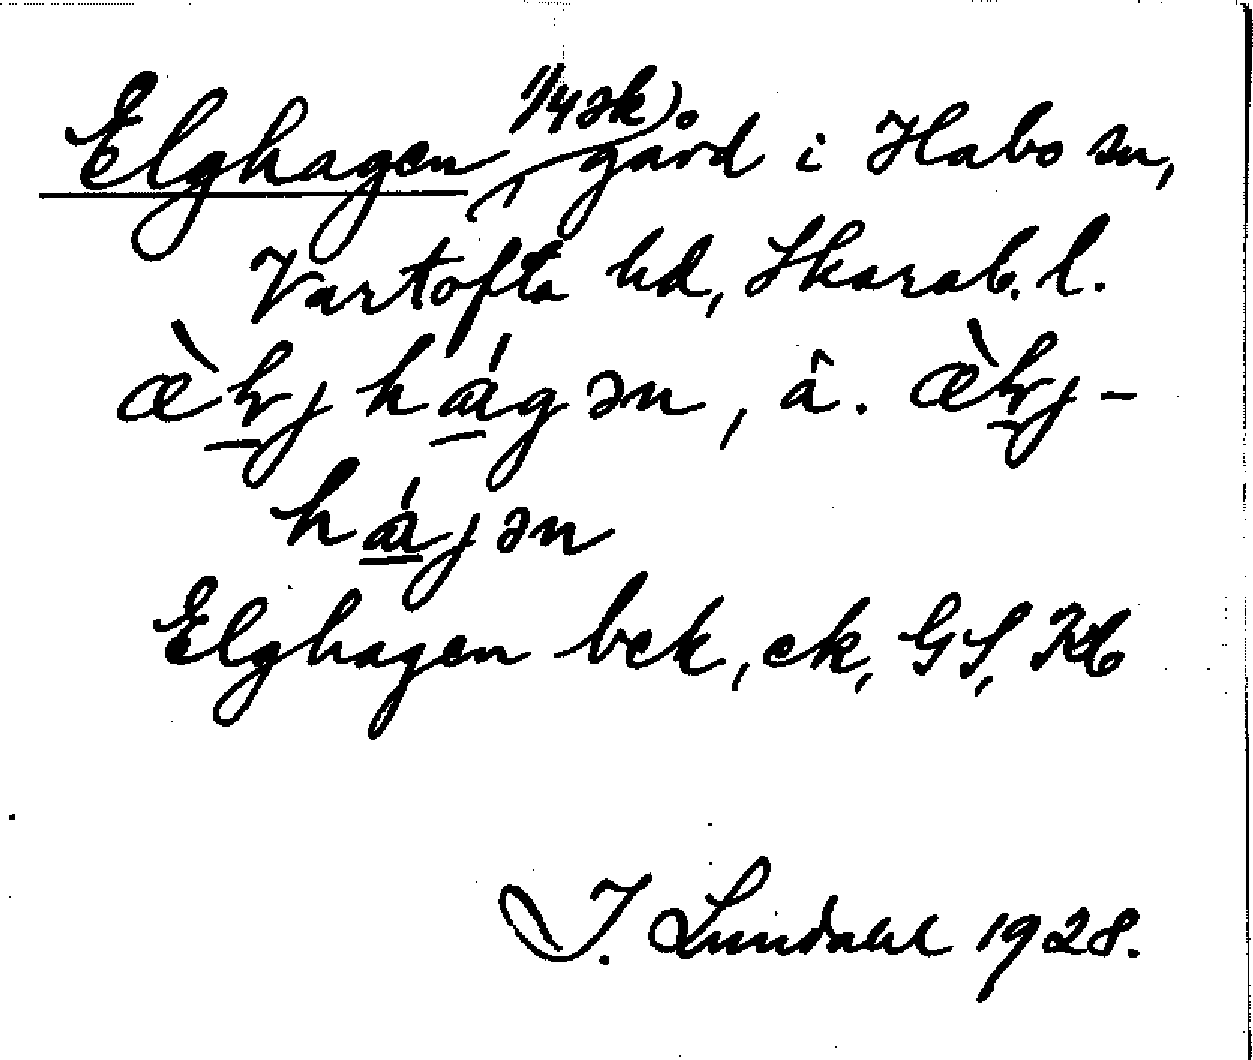 Elghagen, (1/4 sk) gård i Habo sn,
Vartofta hd, Skarab. l.
æ̀ḷj hágən, å. æ̀ḷj-
hájən
Elghagen bek, ek, GS, Kb
I. Lundahl 1928.